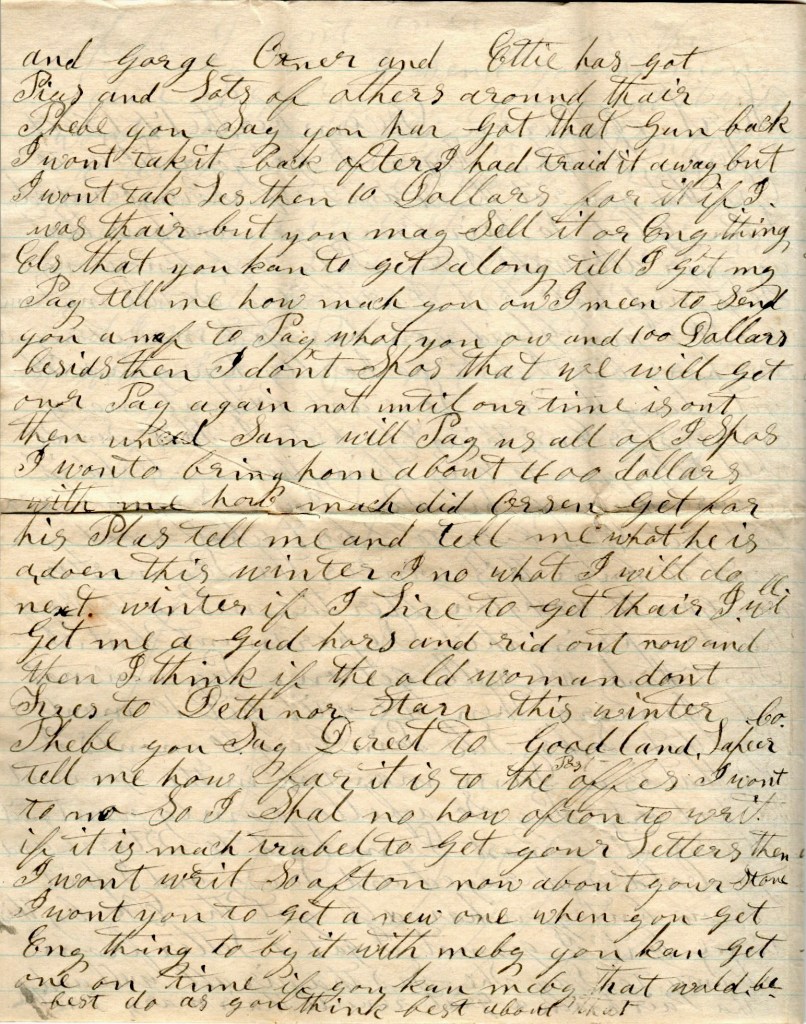 and Gorge Oxner and Ettie has got
Pigs and Lots of others around thair
Phebe you Say you har got that Gun back
I wont tak it back after I had traid it away but
I wont tak Les then 10 Dollars for it if I
was thair but you may Sell it or Eny thing
Els that you kan to get along till I get my
Pay tell me how mach you ow I meen to Send
you a nuf to Pay what you ow and 100 Dollars
besids then I dont Spos that we will get
our Pay again not until our time is out
then unkel Sam will Pay us all of I Spos
I won to bring hom about 400 dollars
with me how mach did Orsen get for
his Plas tell me and tell me what he is
a doen this winter I no what I will do
next winter if I Live to get thair I will
Get me a Gud hors and rid out now and
then I think if the old woman dont
Frees to Deth nor Starv this winter
Phebe you Say Derect to Goodland, Lapeer Co.
tell me how far it is to the Post offes I wont
to no So I Shal no how ofton to writ.
if it is mach trubel to Get your Letters then
I wont writ So afton now about your Stove
I wont you to get a new one when you get
Eny thing to by it with meby you kan get
one on time if you kan meby that would be
best do as you think best about that